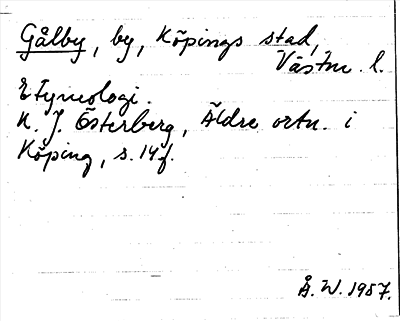 Gålby, by, Köpings stad,
Västm. l.
Etymologi.
K. J. Österberg, Äldre ortn. i
Köping, s. 14f.
Å. W. 1957.